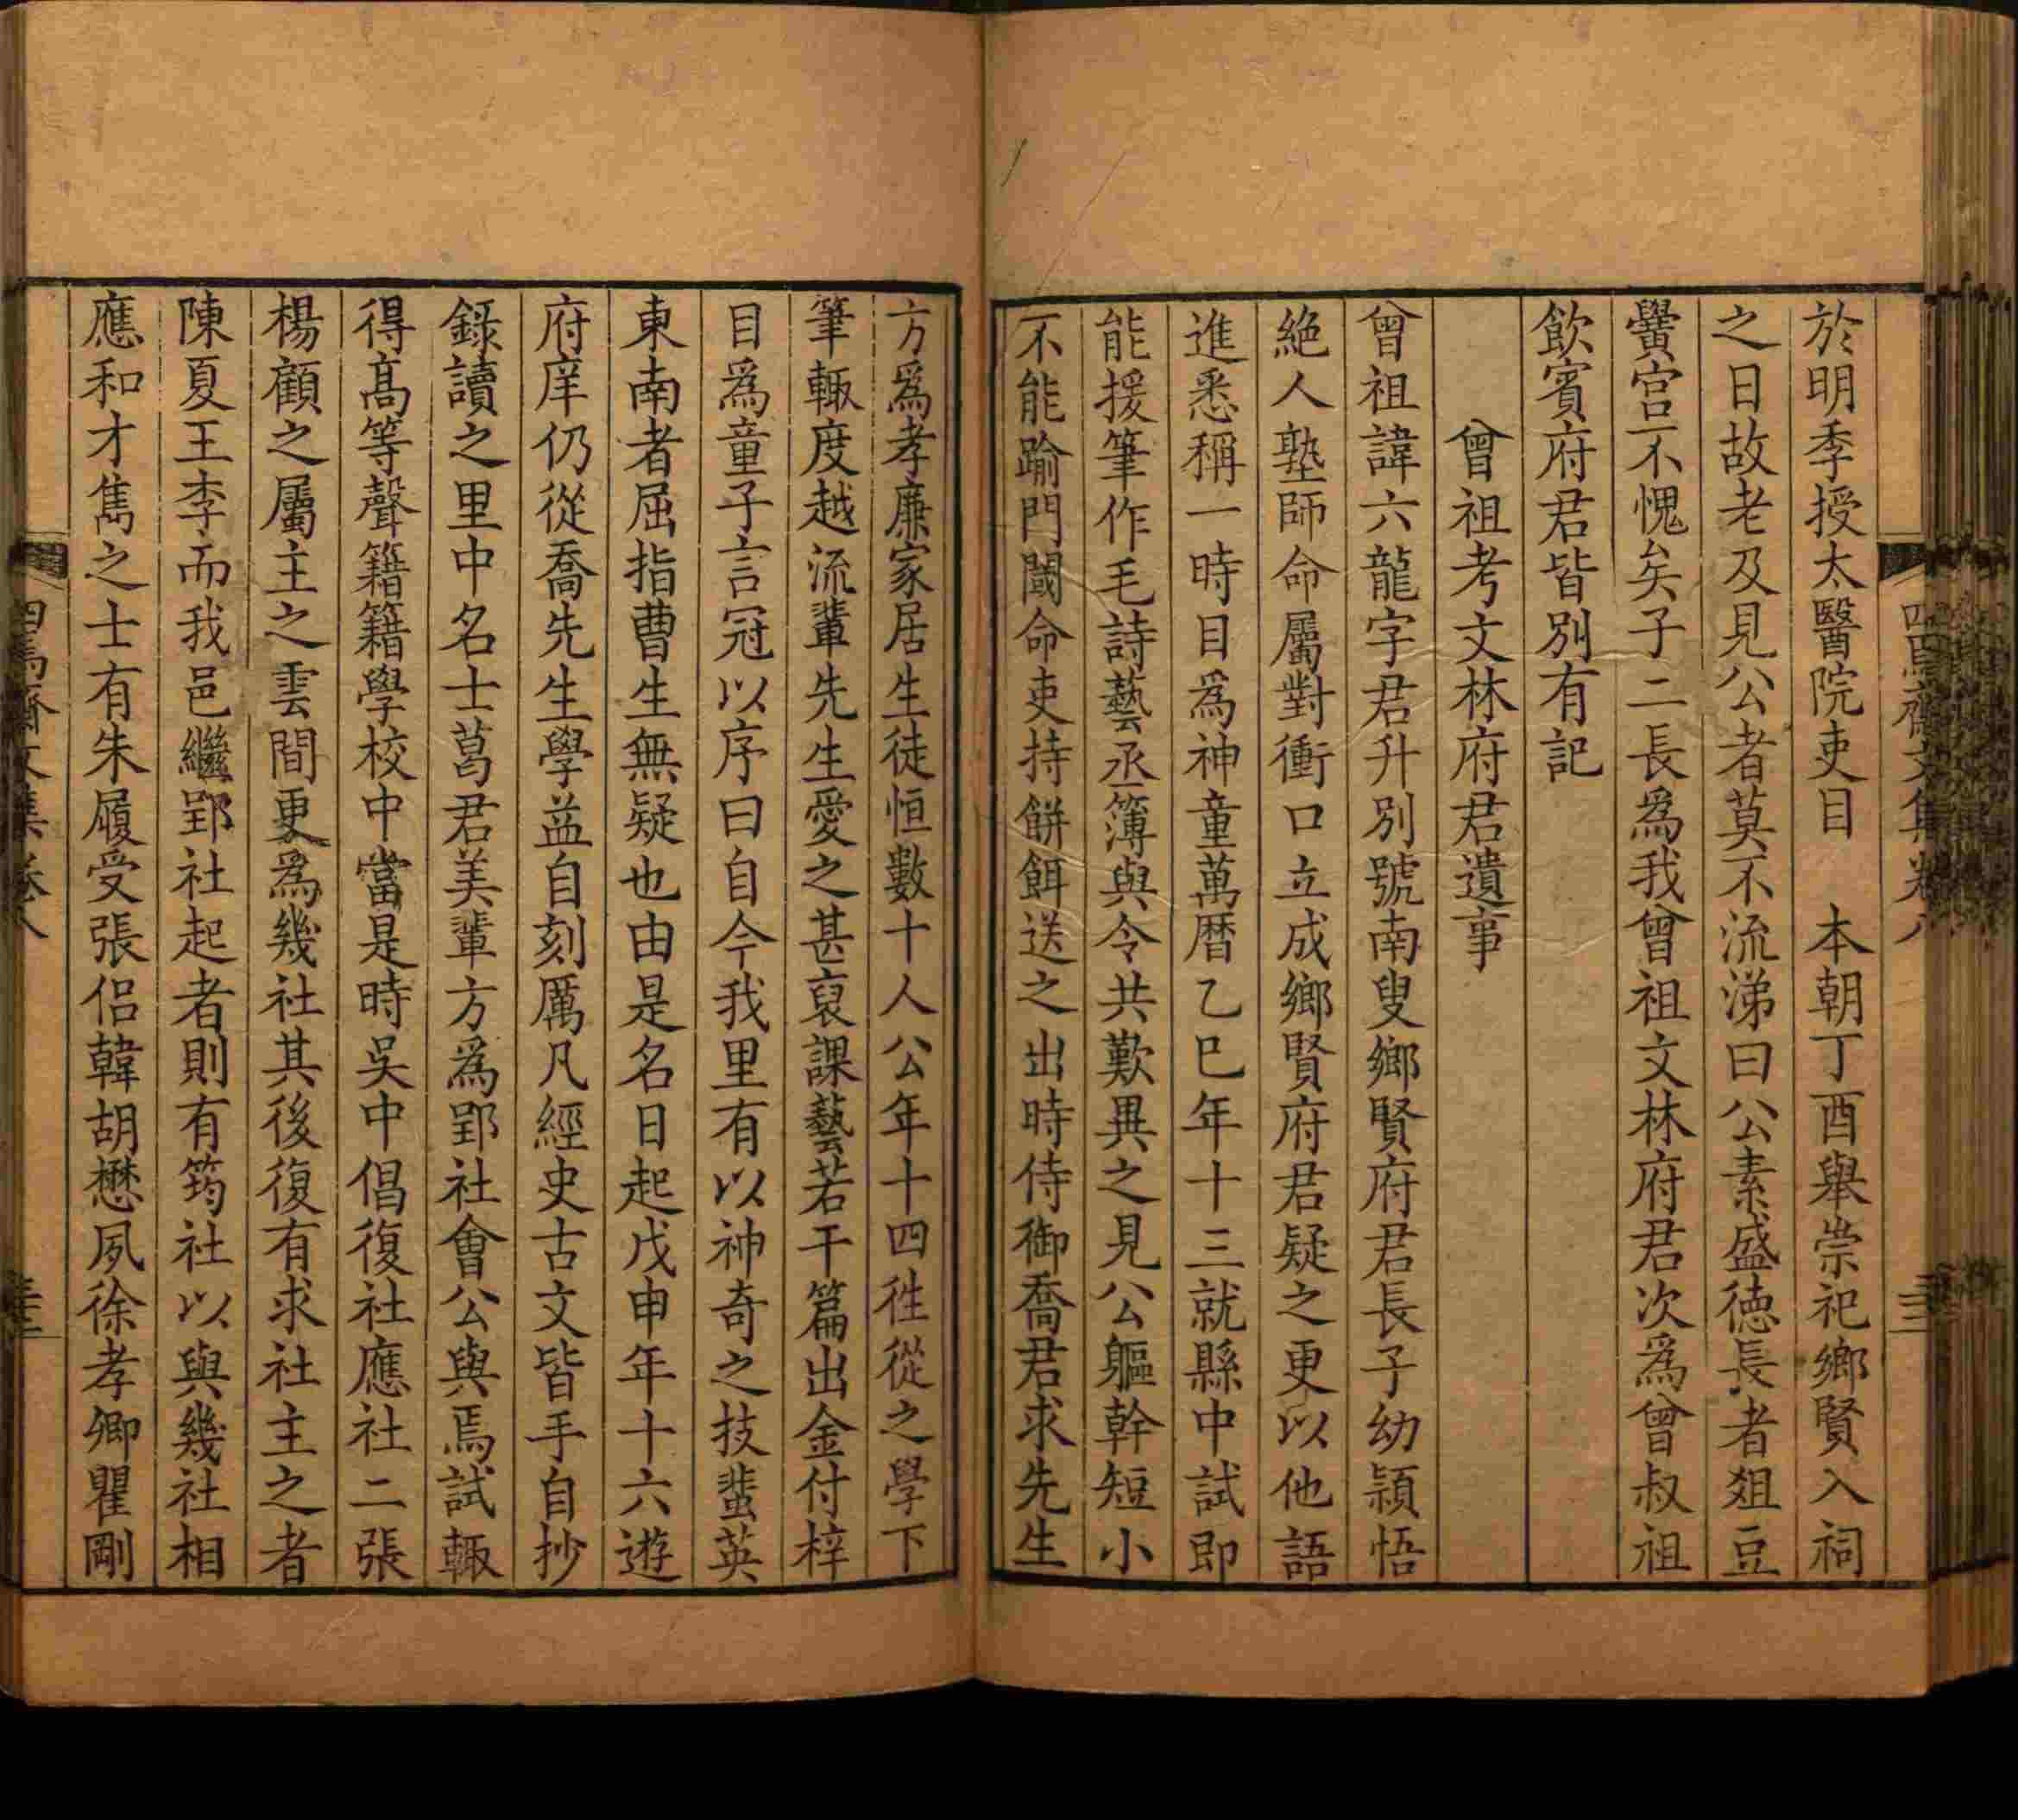 四焉齋文集卷八
於明季授太醫院吏目　本朝丁酉舉崇祀鄉賢入祠
之日故老及見公者莫不流涕曰公素盛德長者爼豆
黌宫不愧矣子二長爲我曾祖文林府君次爲曾叔祖
飲賓府君皆别有記
曾祖考文林府君遺事
曾祖諱六龍字君升别號南叟鄉賢府君長子幼穎悟
絶人塾師命屬對衝口立成鄉賢府君疑之更以他語
進悉稱一時目爲神童萬曆乙巳年十三就縣中試即
能援筆作毛詩藝丞簿與令共歎異之見公軀幹短小
不能踰門閾命吏持餅餌送之出時侍御喬君求先生
方爲孝廉家居生徒恒數十人公年十四徃從之學下
筆輙度越流輩先生愛之甚裒課藝若干篇出金付梓
目爲童子言冠以序曰自今我里有以神奇之技蜚英
東南者屈指曹生無疑也由是名日起戊申年十六遊
府庠仍從喬先生學益自刻厲凡經史古文皆手自抄
錄讀之里中名士葛君美輩方爲郢社會公與焉試輙
得髙等聲籍籍學校中當是時吳中倡復社應社二張
楊顧之屬主之雲間更爲幾社其後復有求社主之者
陳夏王李而我邑繼郢社起者則有筠社以與幾社相
應和才雋之士有朱履受張侣韓胡懋夙徐孝卿瞿剛
四焉齋文集卷八